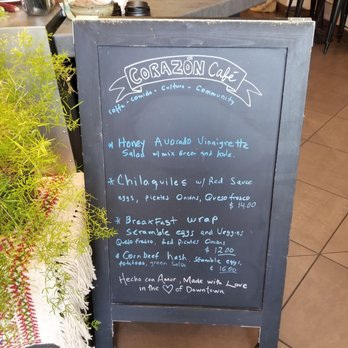 CORAZÓN Café
Coffee - Comida - Culture - Community
* Honey Avocado Vinaigrette
Salad w/ mix Green and Kale.
* Chilaquiles w/ Red Sauce
eggs, picales Onions, Queso fresco
$ 14.00
* BreakFast wrap
Scramble eggs and Veggies
Queso fresco, Red Picales Onions
$ 12.00
* Corn beef hash, scramble eggs,
potatoes, green salsa
$ 16.00
Hecho con Amor, Made with Love
in the ♡ of Downtown